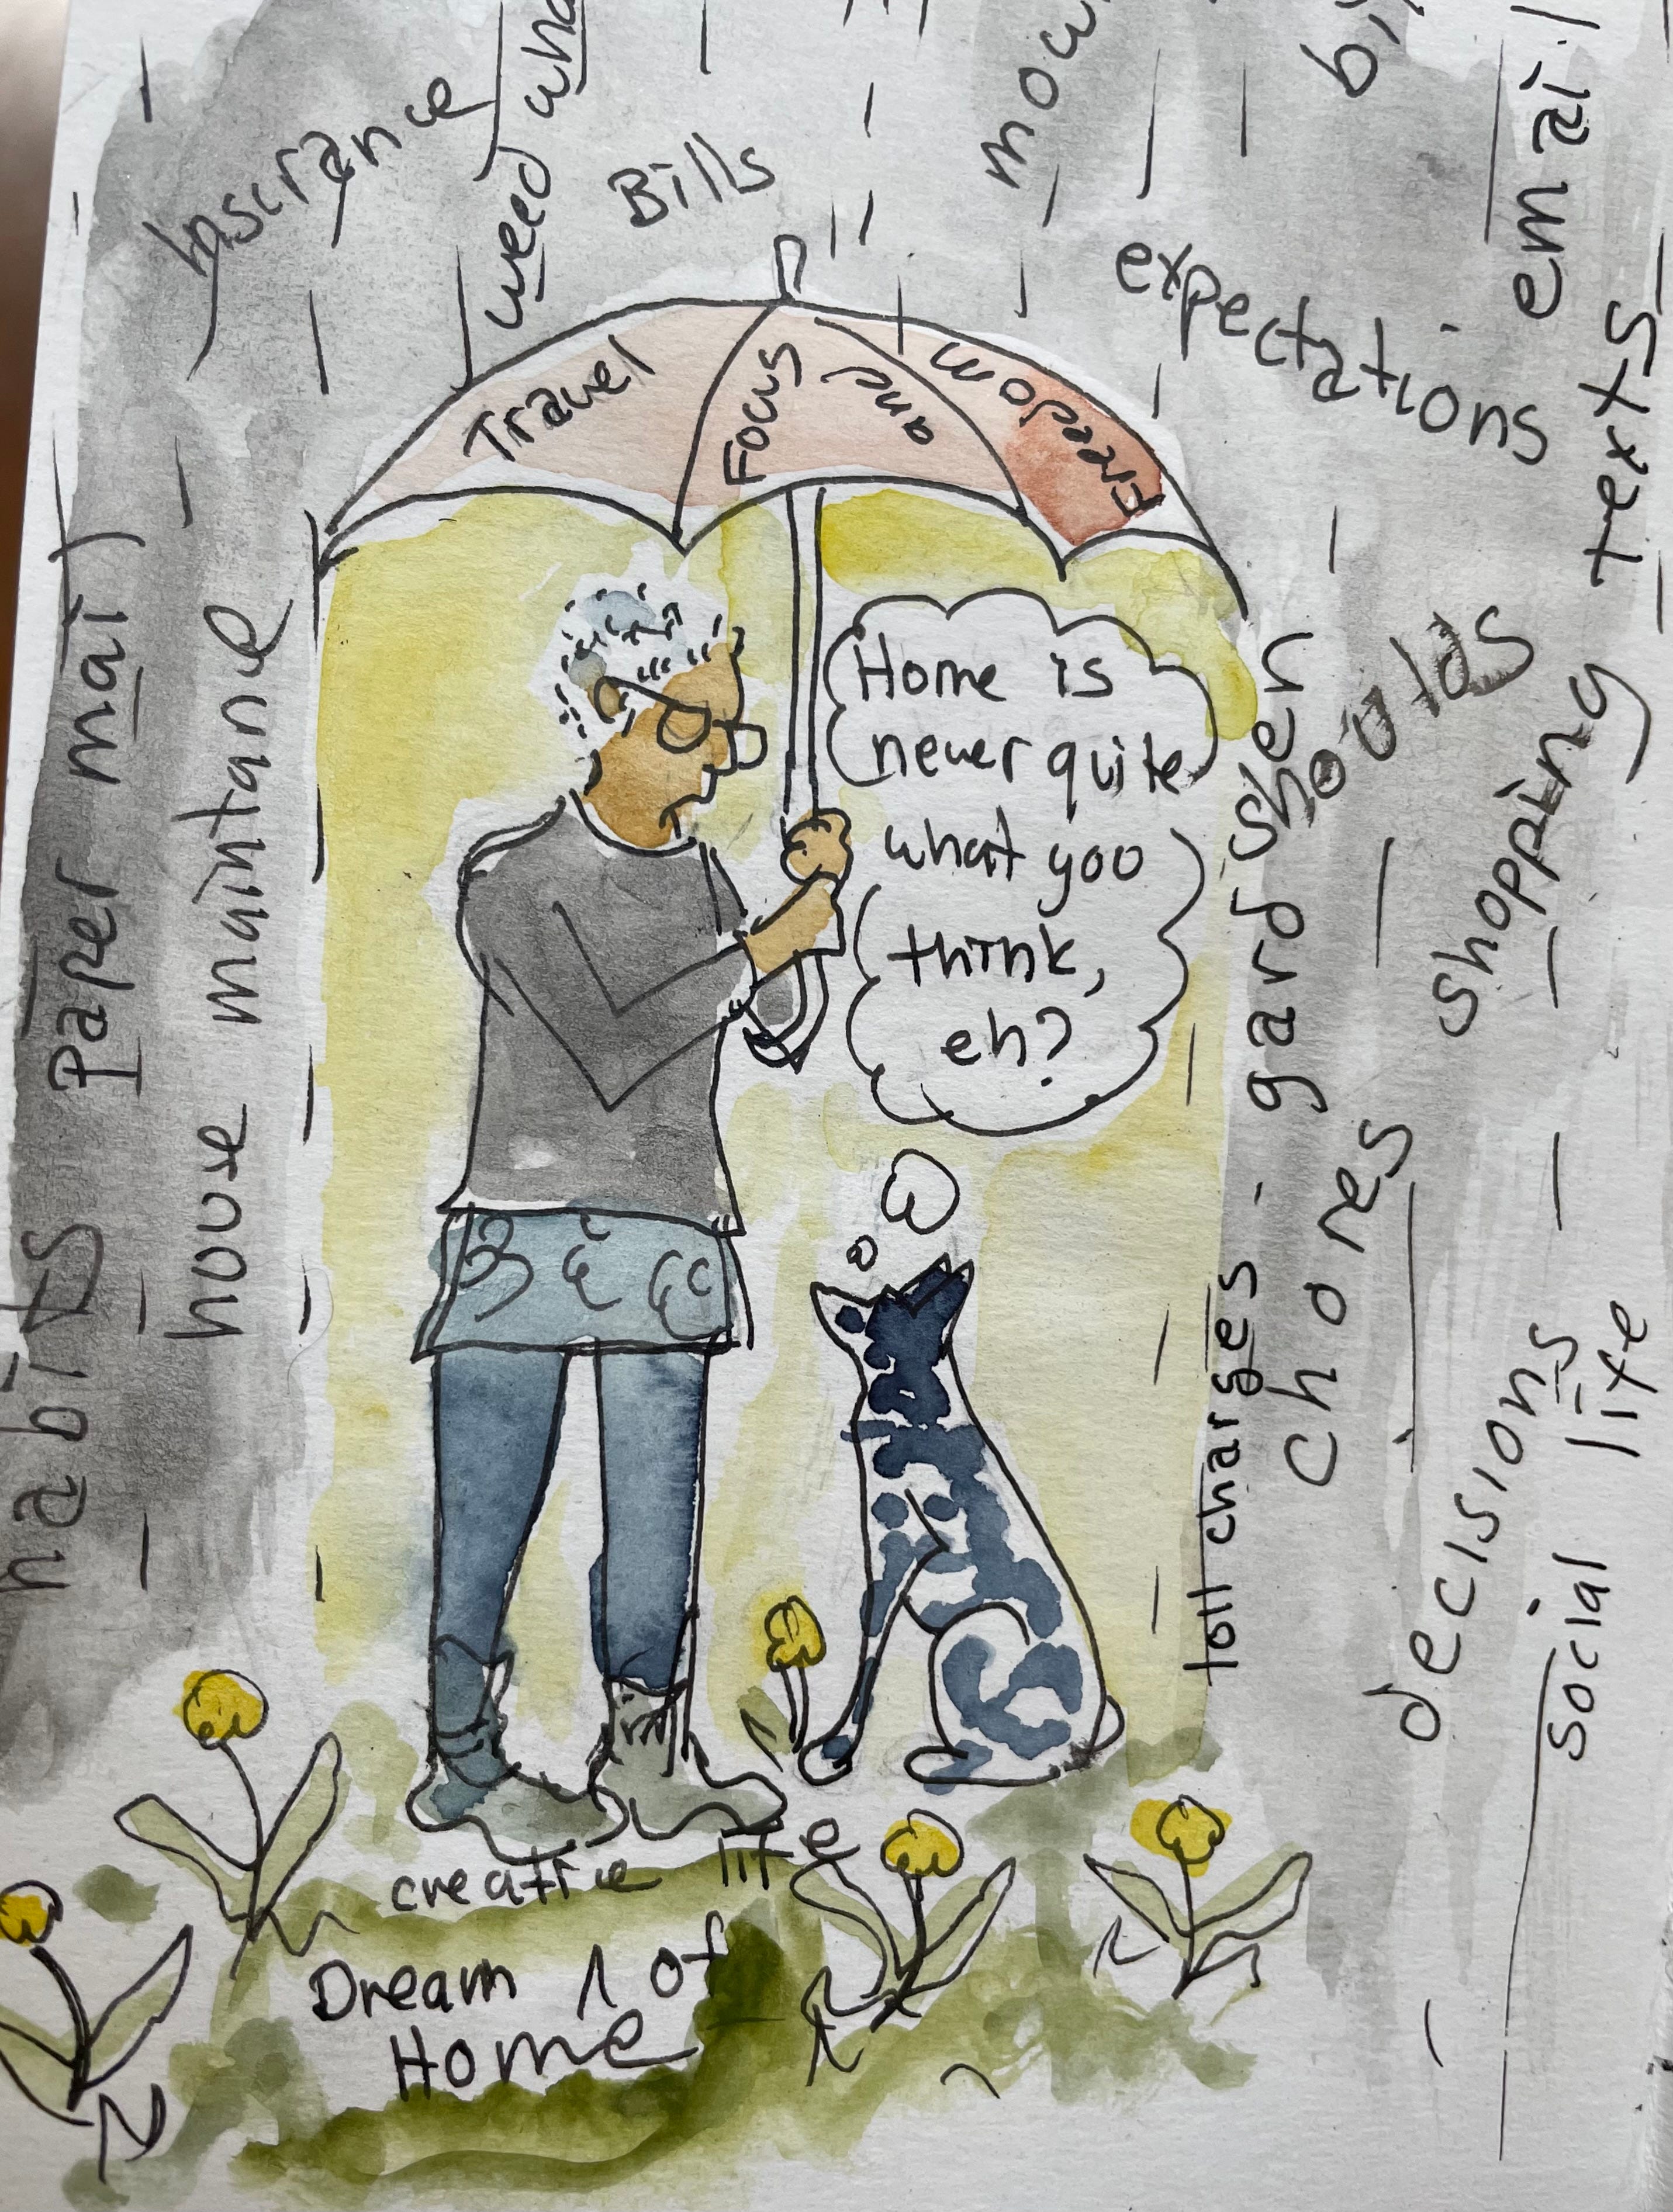 Insurance
weed wha
Bills
mow
expectations
email
texts
Travel
Focus
and
Freedom
Paper mail
house maintanance
habits
Home is
never quite
what you
think,
eh?
shoulds
shopping
toll charges - gard shen
chores
decisions
social life
creative life
Dream ^ of
Home